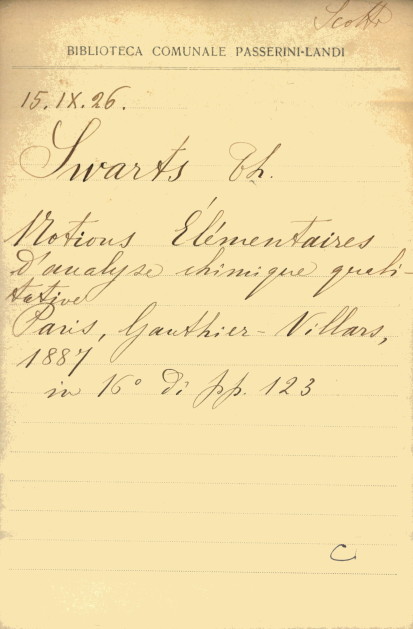 Scotti
BIBLIOTECA COMUNALE PASSERINI-LANDI
15.IX.26.
Swarts Th.
Notions Élémentaires
d'analyse chimique quali-
tative
Paris, Gauthier-Villars,
1887
in 16° di pp. 123
C